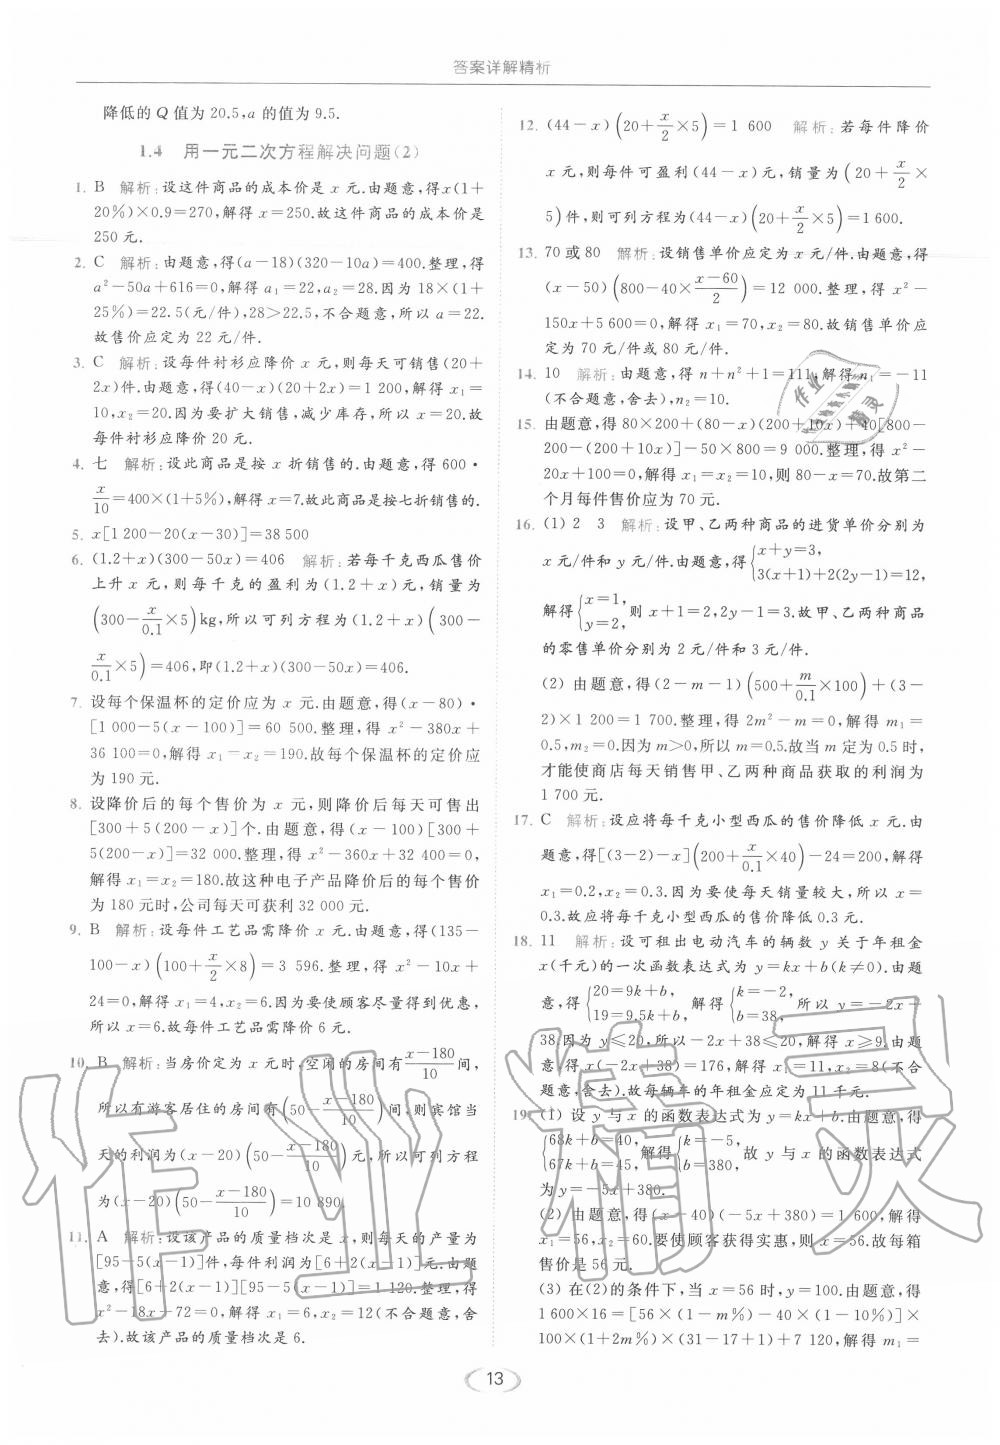 答案详解精析
降低的 Q 值为 20.5,a 的值为 9.5.
1.4 用一元二次方程解决问题(2)
1. B 解析:设这件商品的成本价是 x 元.由题意,得x(1+
20%)×0.9=270,解得 x=250.故这件商品的成本价是
250 元.
2. C 解析:由题意,得(a-18)(320-10a)=400.整理,得
a²-50a+616=0,解得 a₁=22,a₂=28.因为 18×(1+
25%)=22.5(元/件),28>22.5,不合题意,所以 a=22.
故售价应定为 22 元/件.
3. C 解析:设每件衬衫应降价 x 元,则每天可销售(20+
2x)件.由题意,得(40-x)(20+2x)=1 200,解得 x₁=
10,x₂=20.因为要扩大销售,减少库存,所以 x=20.故
每件衬衫应降价 20 元.
4. 七 解析:设此商品是按 x 折销售的.由题意,得 600·
x/10=400×(1+5%),解得 x=7.故此商品是按七折销售的.
5. x[1 200-20(x-30)]=38 500
6. (1.2+x)(300-50x)=406 解析:若每千克西瓜售价
上升 x 元,则每千克的盈利为(1.2+x)元,销量为
(300-x/0.1×5)kg,所以可列方程为(1.2+x)(300-
x/0.1×5)=406,即(1.2+x)(300-50x)=406.
7. 设每个保温杯的定价应为 x 元.由题意,得(x-80)·
[1 000-5(x-100)]=60 500.整理,得 x²-380x+
36 100=0,解得 x₁=x₂=190.故每个保温杯的定价应
为 190 元.
8. 设降价后的每个售价为 x 元,则降价后每天可售出
[300+5(200-x)]个.由题意,得(x-100)[300+
5(200-x)]=32 000.整理,得 x²-360x+32 400=0,
解得 x₁=x₂=180.故这种电子产品降价后的每个售价
为 180元时,公司每天可获利 32 000 元.
9. B 解析:设每件工艺品需降价 x 元.由题意,得(135-
100-x)(100+x/2×8)=3 596.整理,得 x²-10x+
24=0,解得 x₁=4,x₂=6.因为要使顾客尽量得到优惠,
所以 x=6.故每件工艺品需降价 6 元.
10. B 解析:当房价定为 x 元时,空闲的房间有(x-180)/10间,
所以有游客居住的房间有(50-(x-180)/10)间,则宾馆当
天的利润为(x-20)(50-(x-180)/10)元,所以可列方程
为(x-20)(50-(x-180)/10)=10 890.
11. A 解析:设该产品的质量档次是 x,则每天的产量为
[95-5(x-1)]件,每件利润为[6+2(x-1)]元.由题
意,得[6+2(x-1)][95-5(x-1)]=1 120.整理,得
x²-18x+72=0,解得 x₁=6,x₂=12(不合题意,舍
去).故该产品的质量档次是 6.
12. (44-x)(20+x/2×5)=1 600 解析:若每件降价
x 元,则每件可盈利(44-x)元,销量为(20+x/2×
5)件,则可列方程为(44-x)(20+x/2×5)=1 600.
13. 70 或 80 解析:设销售单价应定为 x 元/件.由题意,得
(x-50)(800-40×(x-60)/2)=12 000.整理,得 x²-
150x+5 600=0,解得 x₁=70,x₂=80.故销售单价应
定为 70 元/件或 80 元/件.
14. 10 解析:由题意,得 n+n²+1=111,解得 n₁=-11
(不合题意,舍去),n₂=10.
15. 由题意,得 80×200+(80-x)(200+10x)+40[800-
200-(200+10x)]-50×800=9 000.整理,得 x²-
20x+100=0,解得 x₁=x₂=10,则 80-x=70.故第二
个月每件售价应为 70 元.
16. (1) 2 3 解析:设甲、乙两种商品的进货单价分别为
x 元/件和 y 元/件.由题意,得{x+y=3, 3(x+1)+2(2y-1)=12,
解得{x=1, y=2,则 x+1=2,2y-1=3.故甲、乙两种商品
的零售单价分别为 2 元/件和 3 元/件.
(2) 由题意,得(2-m-1)(500+m/0.1×100)+(3-
2)×1 200=1 700.整理,得 2m²-m=0,解得 m₁=
0.5,m₂=0.因为 m>0,所以 m=0.5.故当 m 定为 0.5 时,
才能使商店每天销售甲、乙两种商品获取的利润为
1 700 元.
17. C 解析:设应将每千克小型西瓜的售价降低 x 元.由
题意,得[(3-2)-x](200+x/0.1×40)-24=200,解得
x₁=0.2,x₂=0.3.因为要使每天销量较大,所以 x=
0.3.故应将每千克小型西瓜的售价降低 0.3 元.
18. 11 解析:设可租出电动汽车的辆数 y 关于年租金
x(千元)的一次函数表达式为 y=kx+b(k≠0).由题
意,得{20=9k+b, 19=9.5k+b,解得{k=-2, b=38,所以 y=-2x+
38.因为 y≤20,所以-2x+38≤20,解得 x≥9.由题
意,得 x(-2x+38)=176,解得 x₁=11,x₂=8(不合
题意,舍去).故每辆车的年租金应定为 11 千元.
19. (1) 设 y 与 x 的函数表达式为 y=kx+b.由题意,得
{68k+b=40, 67k+b=45,解得{k=-5, b=380,故 y 与 x 的函数表达式
为 y=-5x+380.
(2) 由题意,得(x-40)(-5x+380)=1 600,解得
x₁=56,x₂=60.要使顾客获得实惠,则 x=56.故每箱
售价是 56 元.
(3) 在(2)的条件下,当 x=56 时,y=100.由题意,得
1 600×16=[56×(1-m%)-40×(1-10%)]×
100×(1+2m%)×7+7 120,解得 m₁=
13
作业精灵